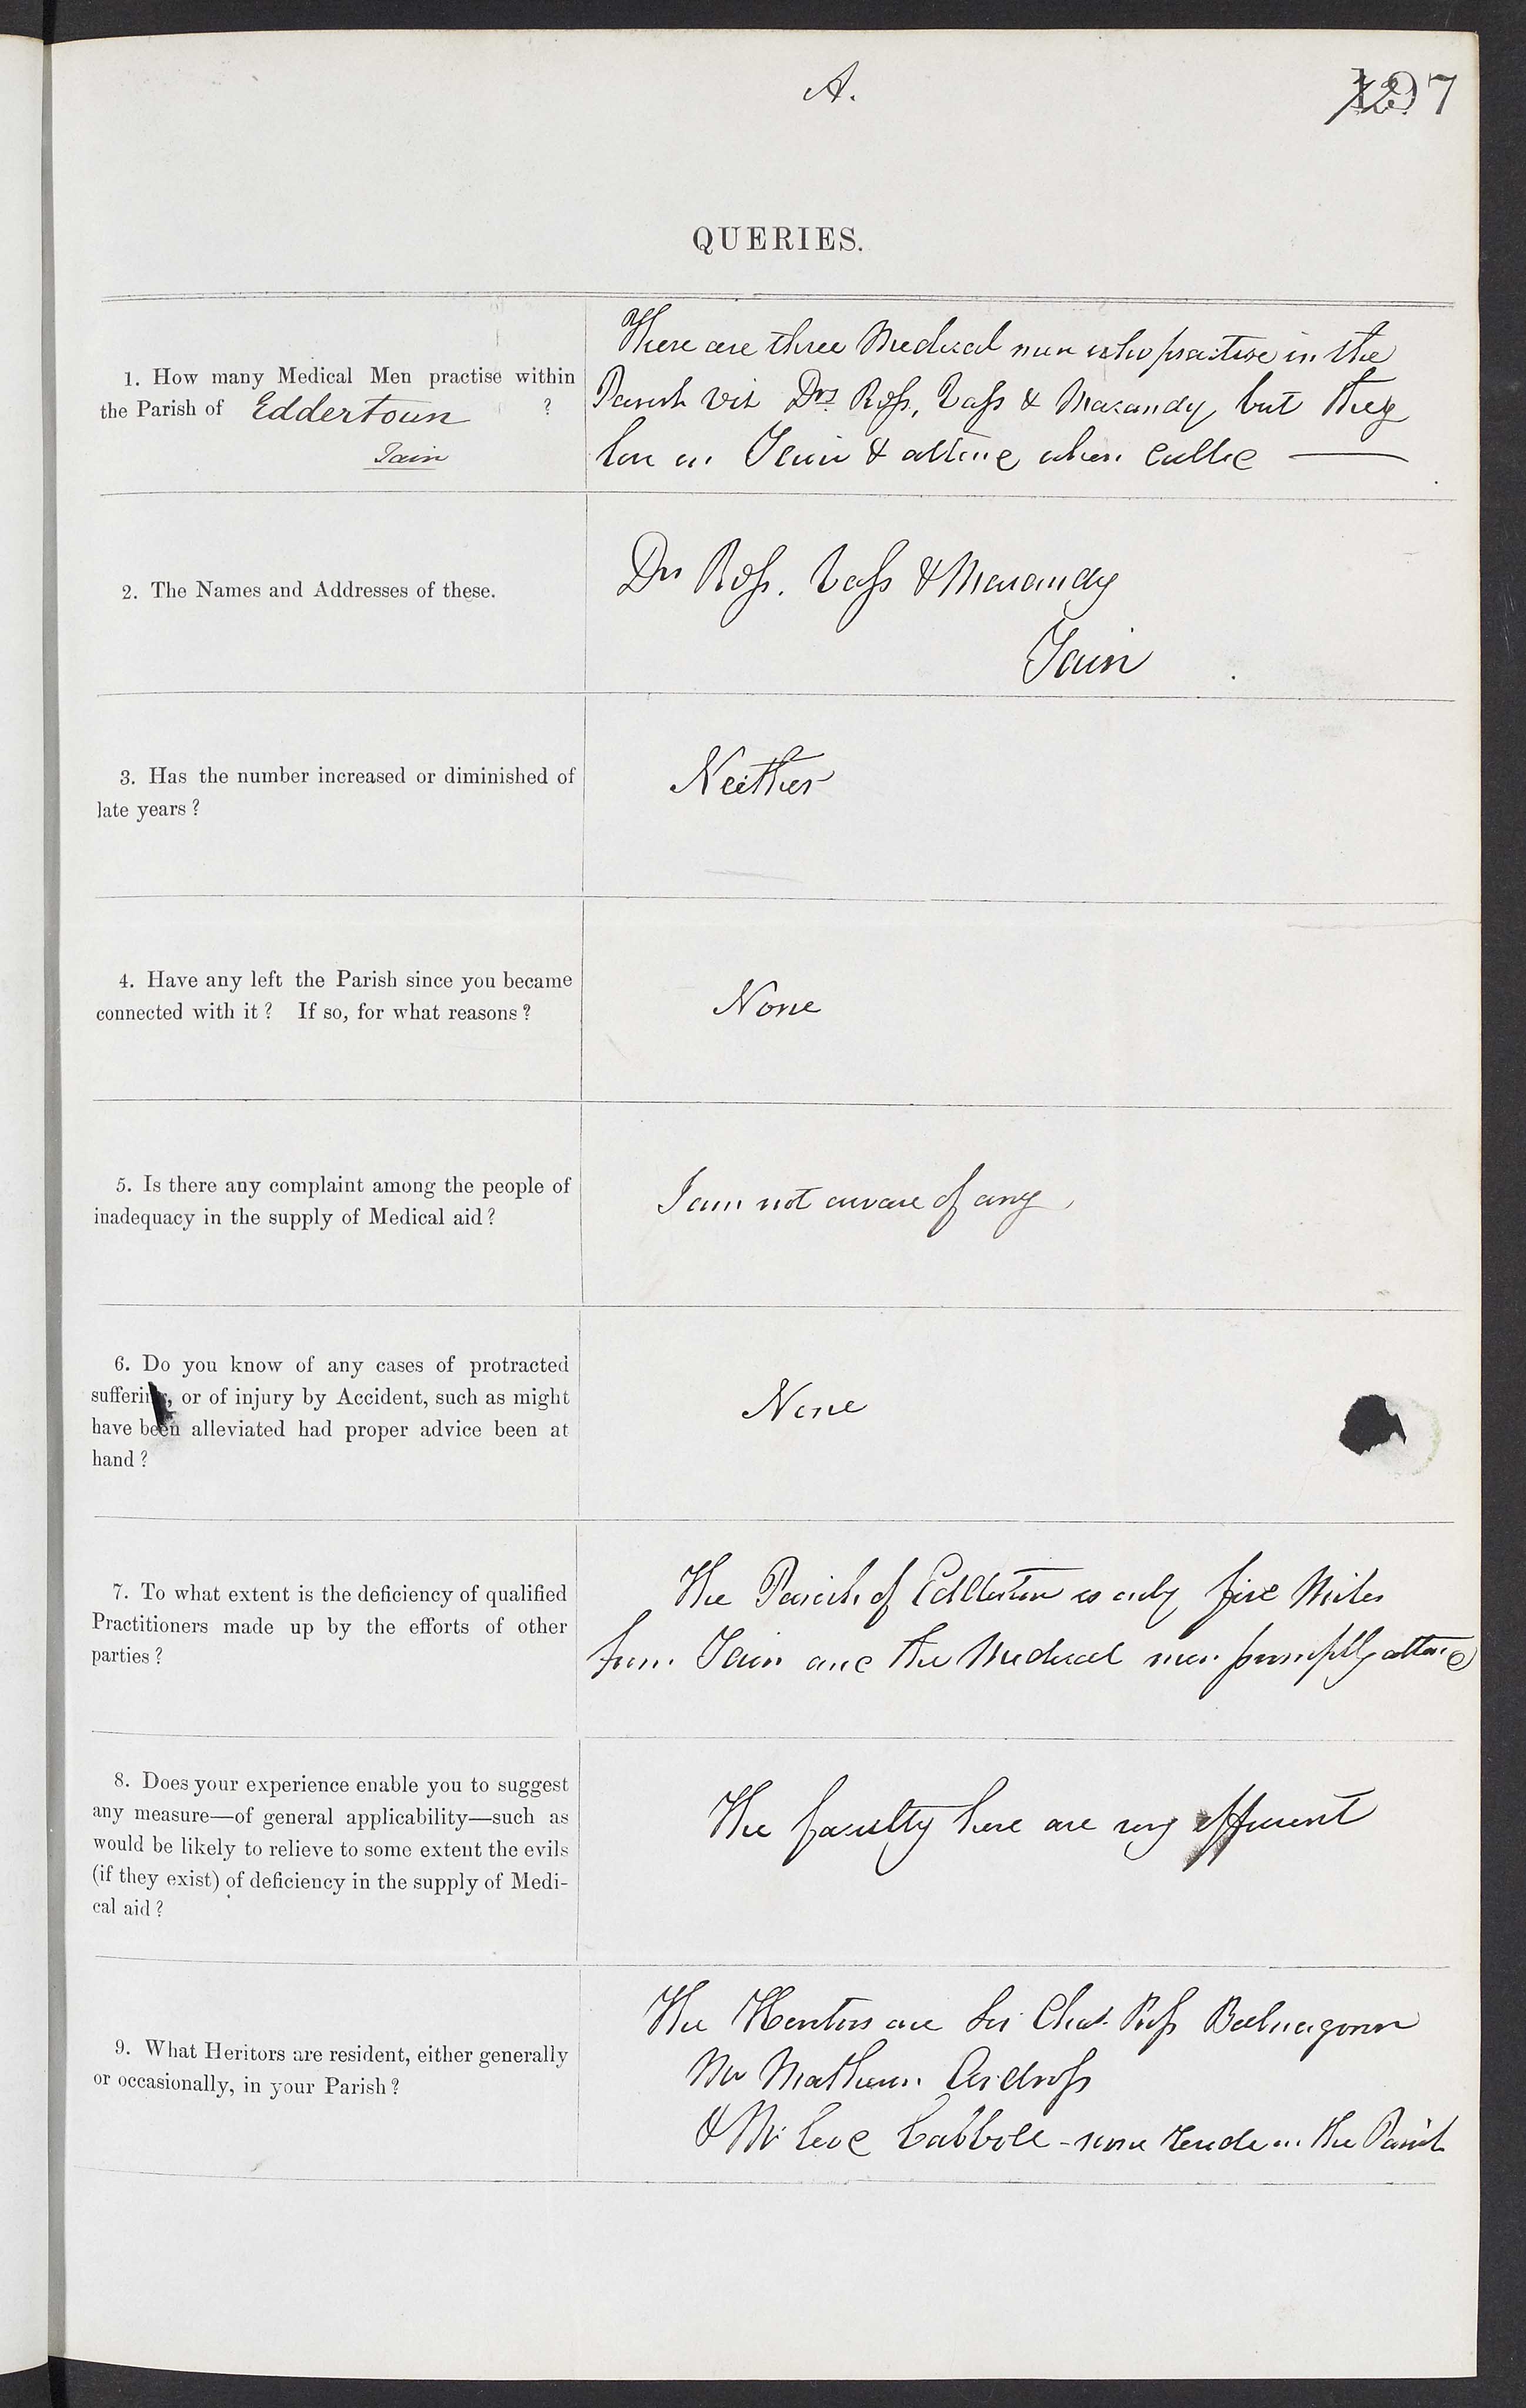 A.
197
QUERIES.
1. How many Medical Men practise within
the Parish of Eddertoun ?
Tain
There are three Medical men who practise in the
Parish viz Drs Ross, Vass & Macandy, but they
live in Tain & attend when called
2. The Names and Addresses of these.
Drs Ross. Vass & Macandy
Tain
3. Has the number increased or diminished of
late years?
Neither
4. Have any left the Parish since you became
connected with it? If so, for what reasons?
None
5. Is there any complaint among the people of
inadequacy in the supply of Medical aid?
I am not aware of any
6. Do you know of any cases of protracted
suffering, or of injury by Accident, such as might
have been alleviated had proper advice been at
hand?
None
7. To what extent is the deficiency of qualified
Practitioners made up by the efforts of other
parties?
The Parish of Edderton is only five Miles
from Tain and the Medical men promptly attend
8. Does your experience enable you to suggest
any measure—of general applicability—such as
would be likely to relieve to some extent the evils
(if they exist) of deficiency in the supply of Medi-
cal aid?
The faculty here are very efficient
9. What Heritors are resident, either generally
or occasionally, in your Parish?
The Heritors are Sir Chas. Ross Balnagown
Mr Matheson Ardross
& Mr Cadboll - none reside in the Parish